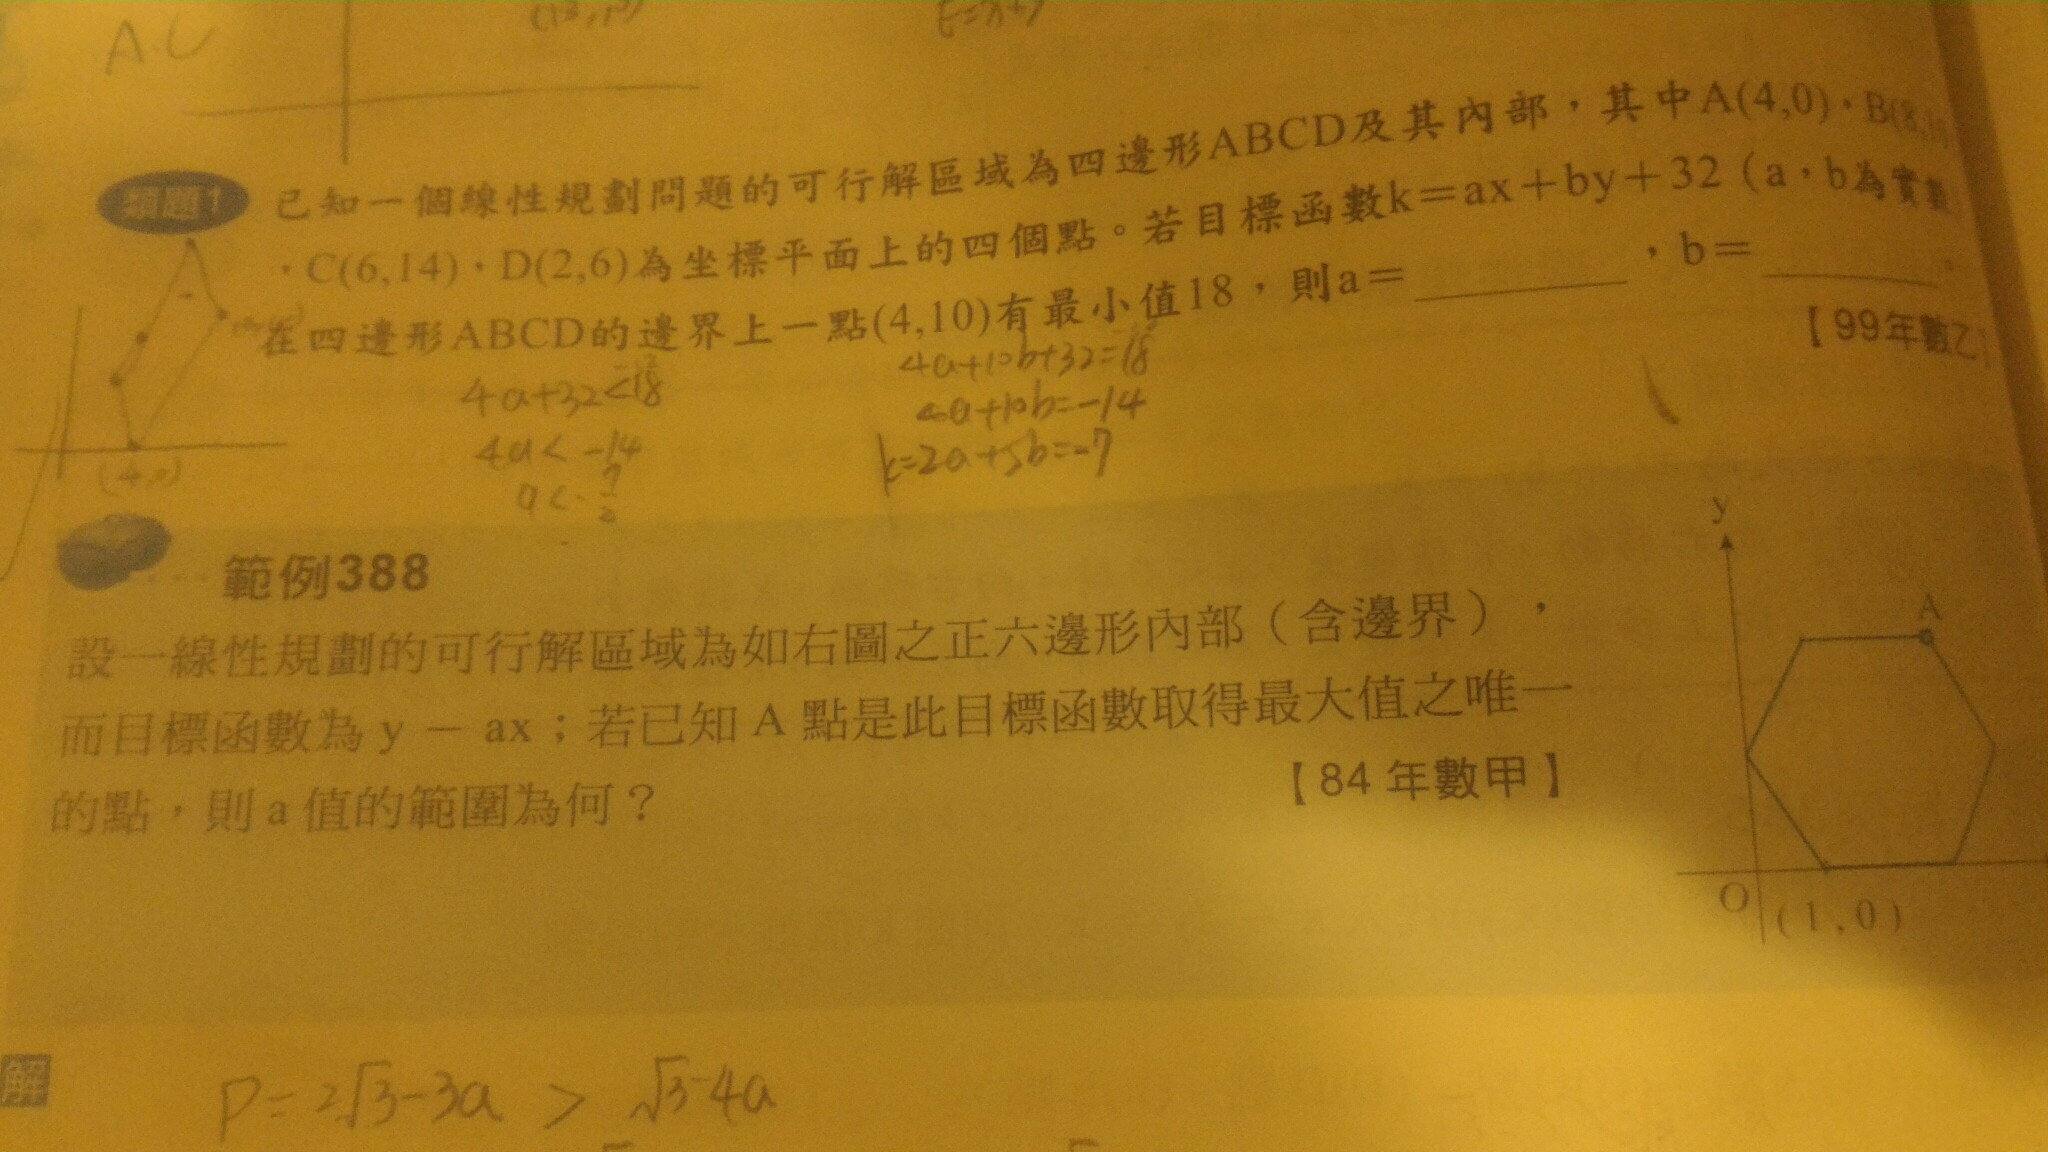 A.C
類題1 已知一個線性規劃問題的可行解區域為四邊形ABCD及其內部，其中A(4,0)，B(8,
，C(6,14)，D(2,6)為坐標平面上的四個點。若目標函數k=ax+by+32（a，b為實數
在四邊形ABCD的邊界上一點(4,10)有最小值18，則a=＿＿＿，b=＿＿＿。
【99年數乙】
4a+32<18
4a<-14
4a+10b+32=18
4a+10b=-14
k=2a+5b=-7
(4,0)
範例388
設一線性規劃的可行解區域為如右圖之正六邊形內部（含邊界），
而目標函數為 y － ax；若已知 A 點是此目標函數取得最大值之唯一
的點，則 a 值的範圍為何？
【84 年數甲】
y
A
O
(1,0)
解
P=2√3-3a > √3-4a